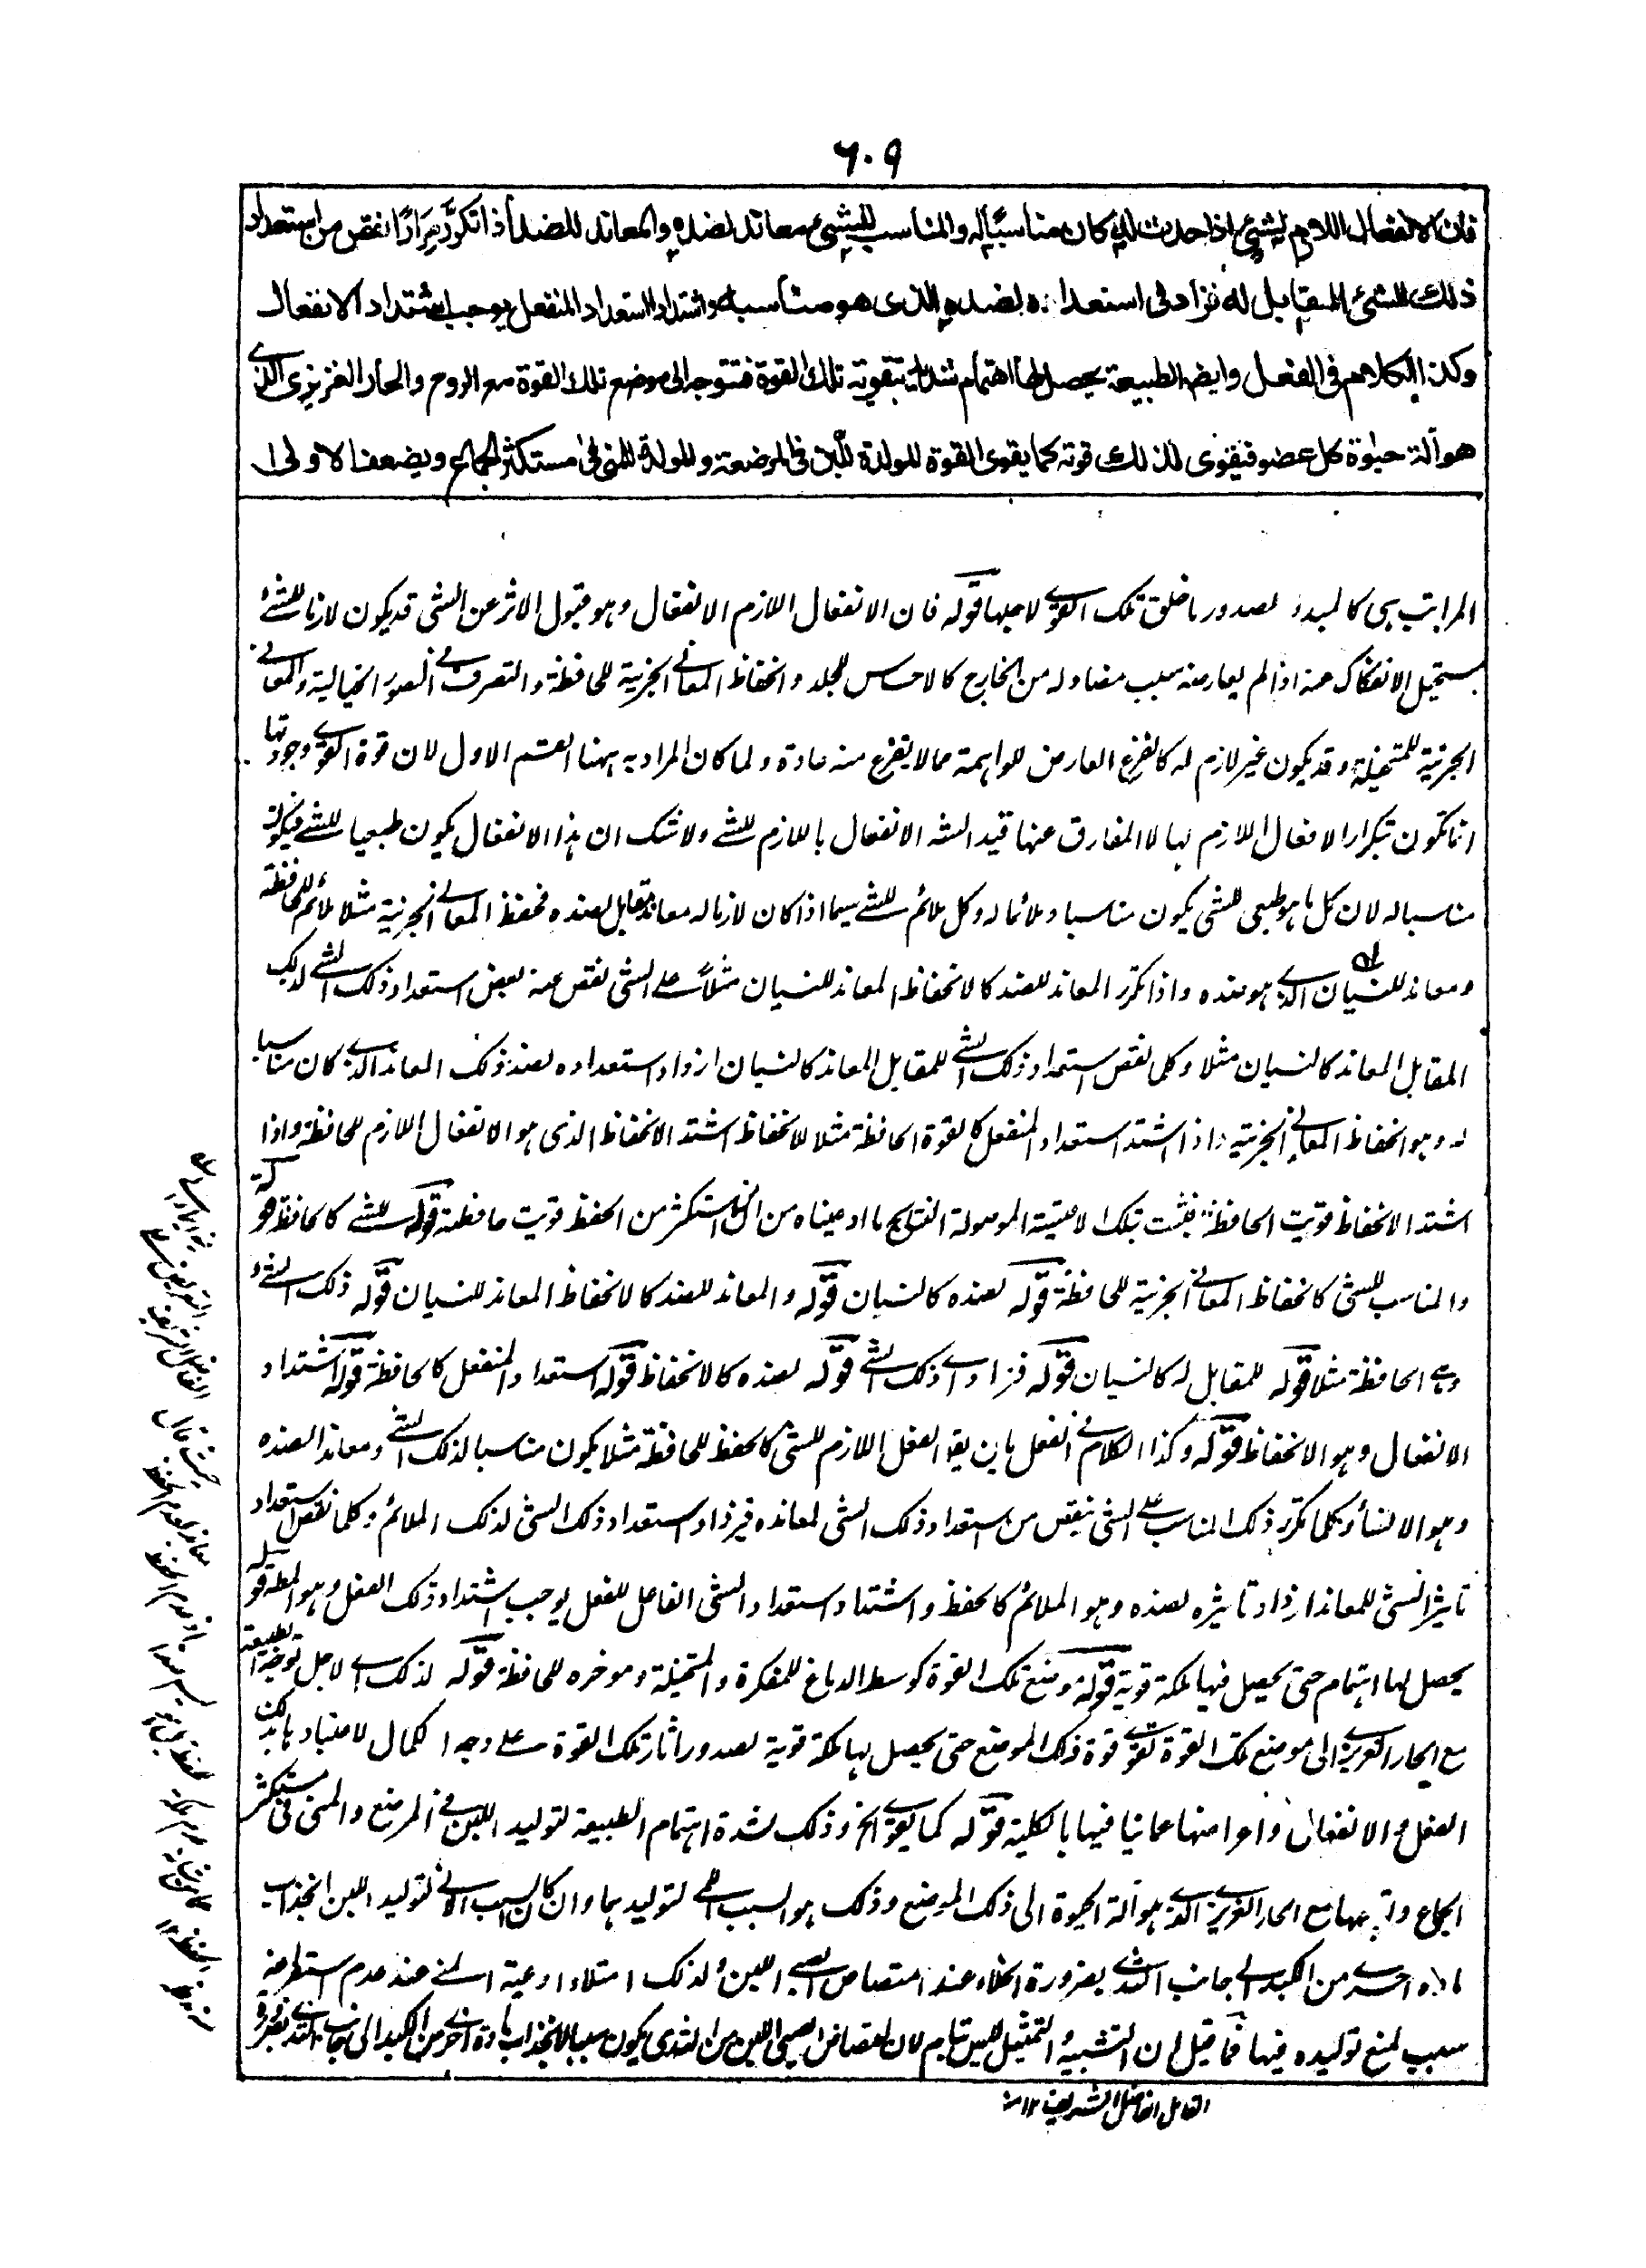 ٦٠٩
فان الانفعال اللازم لشیء اذا حدث لذلک کان مناسبًا له والمناسب للشیء معاند لضده والمعاند للضد اذا تکرّر مرارًا نقص من استعداد
ذلک الشئ المقابل له فزاد فی استعداده لضده الذی هو مناسب له واشتداد استعداد المنفعل یوجب اشتداد الانفعال
وکذا الکلام فی الفعل وایضا الطبیعة یحصل لها اهتمام شدید بتقویة تلک القوة فتتوجه الی موضع تلک القوة مع الروح والحار الغریزی الذی
هو آلة حیوة کل عضو فیقوی لذلک قوته کما یقوی القوة المولدة للّبن فی المرضعة والمولدة للمنی فی مستکثر الجماع ویضعف الاولی
المراتب هی کالمبدء لصدور ما خلق تلک القوی لاجلها قوله فان الانفعال اللازم الانفعال وهو قبول الاثر عن الشی قد یکون لازما للشئ
یستحیل الانفکاک عنه اذا لم یعارضه سبب مضاد له من الخارج کالاحساس للجلد وانحفاظ المعانی الجزئیة للحافظة والتصرف فی الصور الخیالیة والمعانی
الجزئیة للمتخیلة وقد یکون غیر لازم له کالفزع العارض للواهمة مما لا یفزع منه عادة ولما کان المراد به ههنا القسم الاول لان قوة القوی وجودتها
انما تکون بتکرار الافعال اللازم لها لا المفارق عنها قید الشه الانفعال باللازم للشے ولا شک ان هذا الانفعال یکون طبعیا للشے فیکون
مناسبا له لان کل ما هو طبعی للشی یکون مناسبا وملائما له وکل ملائم للشے سیما اذا کان لازما له معاند مقابل لضده فحفظ المعانی الجزئیة مثلا ملائم للحافظة
ومعاند للنسیان الذی هو ضده واذا تکرر المعاند للضد کالانحفاظ المعاند للنسیان مثلاً علی الشی نقص عنه بعض استعداد ذلک الشے لذلک
المقابل المعاند کالنسیان مثلا وکلما نقص استعداد ذلک الشے للمقابل المعاند کالنسیان ازداد استعداده لضد ذلک المعاند الذی کان مناسبا
له وهو انحفاظ المعانی الجزئیة واذا اشتد استعداد المنفعل کالقوة الحافظة مثلا للانحفاظ اشتد الانحفاظ الذی هو الانفعال اللازم للحافظة واذا
اشتد الانحفاظ قویت الحافظة فثبت بتلک الاقیسة الموصولة النتائج ما ادعیناه من ان من استکثر من الحفظ قویت حافظته قوله للشے کالحافظة قوله
والمناسب للشئ کانحفاظ المعانی الجزئیة للحافظة قوله لضده کالنسیان قوله والمعاند للضد کالانحفاظ المعاند للنسیان قوله ذلک الشئ
وهی الحافظة مثلا قوله للمقابل له کالنسیان قوله فزاد ای ذلک الشے قوله لضده کالانحفاظ قوله استعداد المنفعل کالحافظة قوله اشتداد
الانفعال وهو الانحفاظ قوله وکذا الکلام فی الفعل بان یقو الفعل اللازم للشئ کالحفظ للحافظة مثلا یکون مناسبا لذلک الشے ومعاندا لضده
وهو الانساء وکلما تکرر ذلک المناسب علی الشئ ینقص من استعداد ذلک الشی لمعانده فیزداد استعداد ذلک الشی لذلک الملائم وکلما نقص استعداد
تاثیر الشئ للمعاند ازداد تاثیره لضده وهو الملائم کالحفظ واشتداد استعداد الشئ الفاعل للفعل یوجب اشتداد ذلک الفعل وهو المط قوله
یحصل لها اهتمام حتی یحصل فیها ملکة قویة قوله موضع تلک القوة کوسط الدماغ للمفکرة والمتخیلة وموخره للحافظة قوله لذلک ای لاجل توجه الطبیعة
مع الحار الغریزی الی موضع تلک القوة تقوی قوة ذلک الموضع حتی یحصل بها ملکة قویة لصدور اثار تلک القوة علی وجه الکمال لاعتیادها بذلک
الفعل والانفعال واعراضها عما نیافیها بالکلیة قوله کما یقوی الخ وذلک لشدة اهتمام الطبیعة لتولید اللبن فی المرضع والمنی فی مستکثر
الجماع وتوجهها مع الحار الغریزی الذی هو آلة الحیوة الی ذلک الموضع وذلک هو السبب التام لتولیدهما وان کان السبب الآخر لتولید اللبن انجذاب
مادة اخری من الکبد الی جانب الثدی بضرورة الخلاء عند امتصاص الصبی اللبن ولذلک امتلاء اوعیة المنی عند عدم استفراغه
سبب لمنع تولیده فیها فما قیل ان التشبیه والتمثیل لیس بتام لان امتصاص الصبی اللبن من الثدی یکون سببا لانجذاب مادة اخری من الکبد الی جانب الثدی بضرورة
القائل الفاضل الشریف ١٢ منه